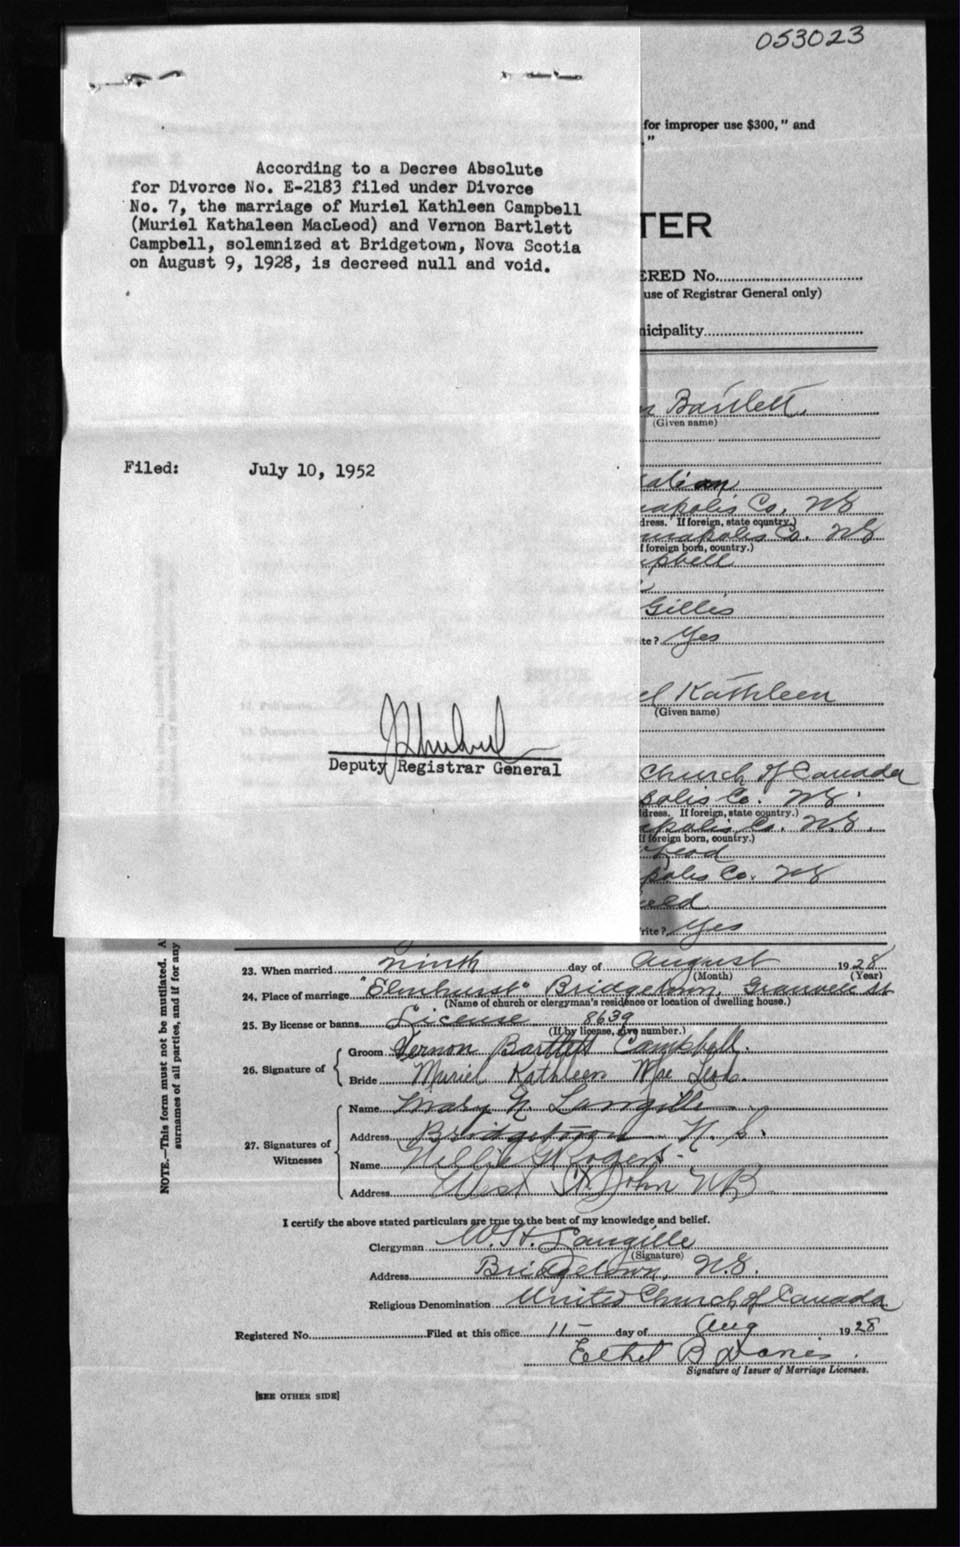 053023
for improper use $300," and
"
According to a Decree Absolute
for Divorce No. E-2183 filed under Divorce
No. 7, the marriage of Muriel Kathleen Campbell
(Muriel Kathaleen MacLeod) and Vernon Bartlett
Campbell, solemnized at Bridgetown, Nova Scotia
on August 9, 1928, is decreed null and void.
Filed: July 10, 1952
Deputy Registrar General
TER
ERED No.
use of Registrar General only)
nicipality
n Bartlett.
(Given name)
apolis Co. NS
dress. If foreign, state country.)
nnapolis Co. NS
f foreign born, country.)
mpbell
Gilles
rite? Yes
BRIDE
el Kathleen
(Given name)
Church of Canada
polis Co. NS.
dress. If foreign, state country.)
apolis Co. N.S.
if foreign born, country.)
Leod
polis Co. NS
rite? Yes
NOTE.—This form must not be mutilated.
surnames of all parties, and if for any
23. When married ninth day of August 1928
(Month) (Year)
24. Place of marriage "Elmhurst" Bridgetown, Granville St
(Name of church or clergyman's residence or location of dwelling house.)
25. By license or banns License 8639
(If by license, give number.)
26. Signature of
Groom Vernon Bartlett Campbell.
Bride Muriel Kathleen Mac Leod.
27. Signatures of Witnesses
Name Mary N. Langille
Address Bridgetown N. S.
Name Nellie G Rogers.
Address West St John NB
I certify the above stated particulars are true to the best of my knowledge and belief.
Clergyman W. H. Langille
(Signature)
Address Bridgetown, N.S.
Religious Denomination United Church of Canada
Registered No. Filed at this office 11- day of Aug 1928
Ethel B Davies.
Signature of Issuer of Marriage Licenses.
[SEE OTHER SIDE]